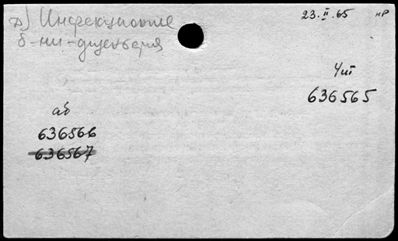 д) Инфекционные
б-ни - дизентерия
23.II.65
нр
Чит
636565
аб
636566
636567